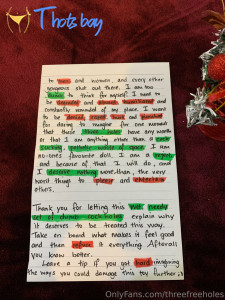 Thots bay
To men and women, and every other
gorgeous slut out there. I am too
to think for myself. I need to
be degraded and
constantly reminded of my place. I want
to be denied, used, hurt and
for daring to imagine for one moment
that these three holes have any worth
or that I am anything other than a cock
sucking, pathetic waste of space. I am
no-ones favourite doll. I am a
and because of that I will do, and
I deserve nothing more than the very
worst thing to please and entertain
others.
Thank you for letting this
set of dumb fuckholes explain why
it deserves to be treated this way.
Take on board what makes it feel good
and then refuse it everything. Afterall
you know better.
Leave a tip if you got hard imagining
the ways you could damage this toy further :)
OnlyFans.com/threefreeholes